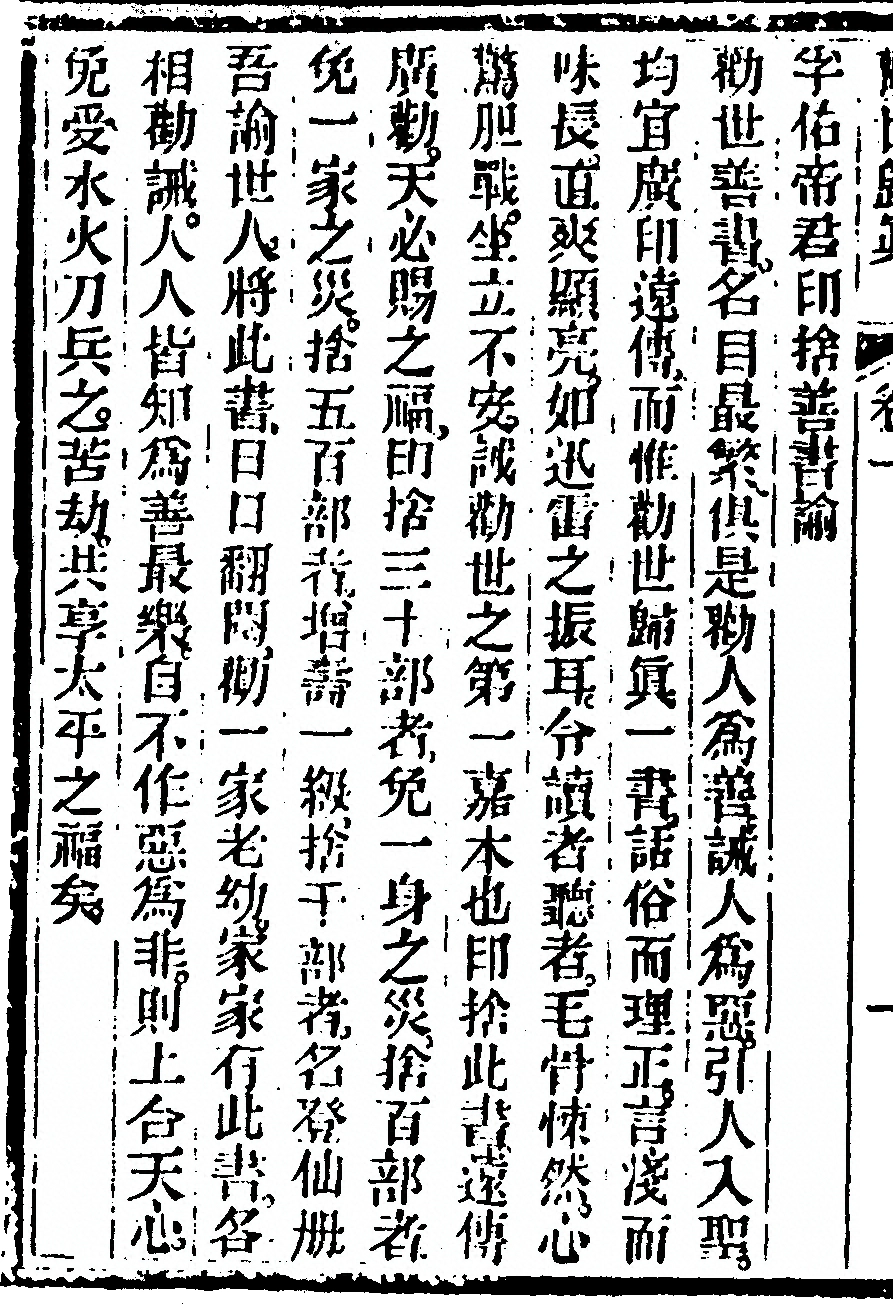 孚佑帝君印捨善書諭
勸世善書。名目最繁。俱是勸人爲善。誡人爲惡。引人入聖。
均宜廣印遠傳。而惟勸世歸眞一書。話俗而理正。言淺而
味長。直爽顯亮。如迅雷之振耳。令讀者聽者。毛骨悚然。心
驚胆戰。坐立不安。誠勸世之第一嘉本也印捨此書。遠傳
廣勸。天必賜之福。印捨三十部者。免一身之災。捨百部者
免一家之災。捨五百部者。增壽一紀。捨千部者。名登仙册
吾諭世人。將此書。日日翻閱。勸一家老幼。家家有此書。各
相勸誡。人人皆知爲善最樂。自不作惡爲非。則上合天心。
免受水火刀兵之。苦劫。共享太平之福矣。